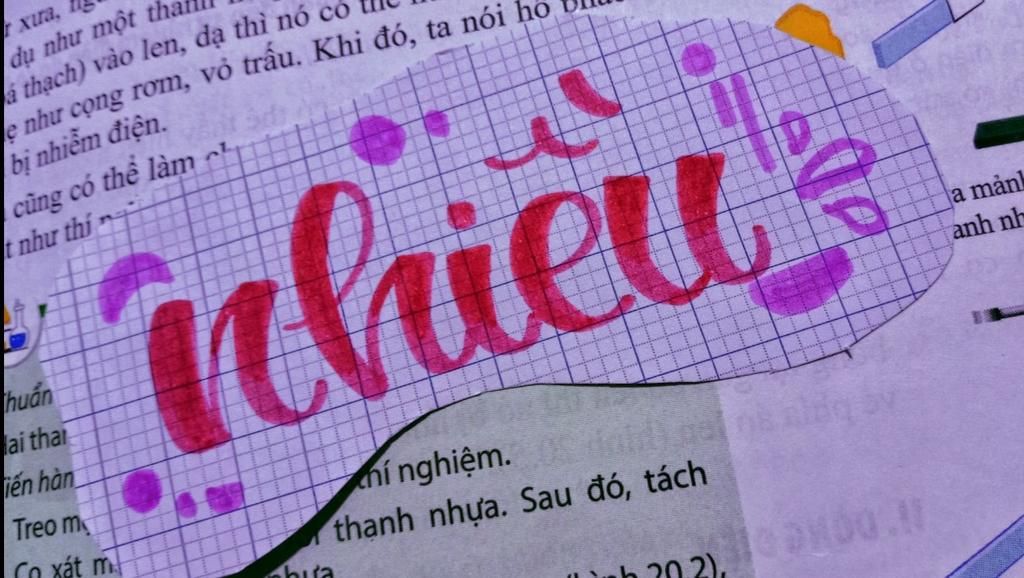 xưa,
dụ như một thanh
thạch) vào len, dạ thì nó có thể
như cọng rơm, vỏ trấu. Khi đó, ta nói hổ phách
bị nhiễm điện.
cũng có thể làm
như thí
nhiều
a mảnh
anh nh
Chuẩn
Hai than
Tiến hàn
Treo m
Cọ xát m
thí nghiệm.
thanh nhựa. Sau đó, tách
nhựa
(hình 20.2),